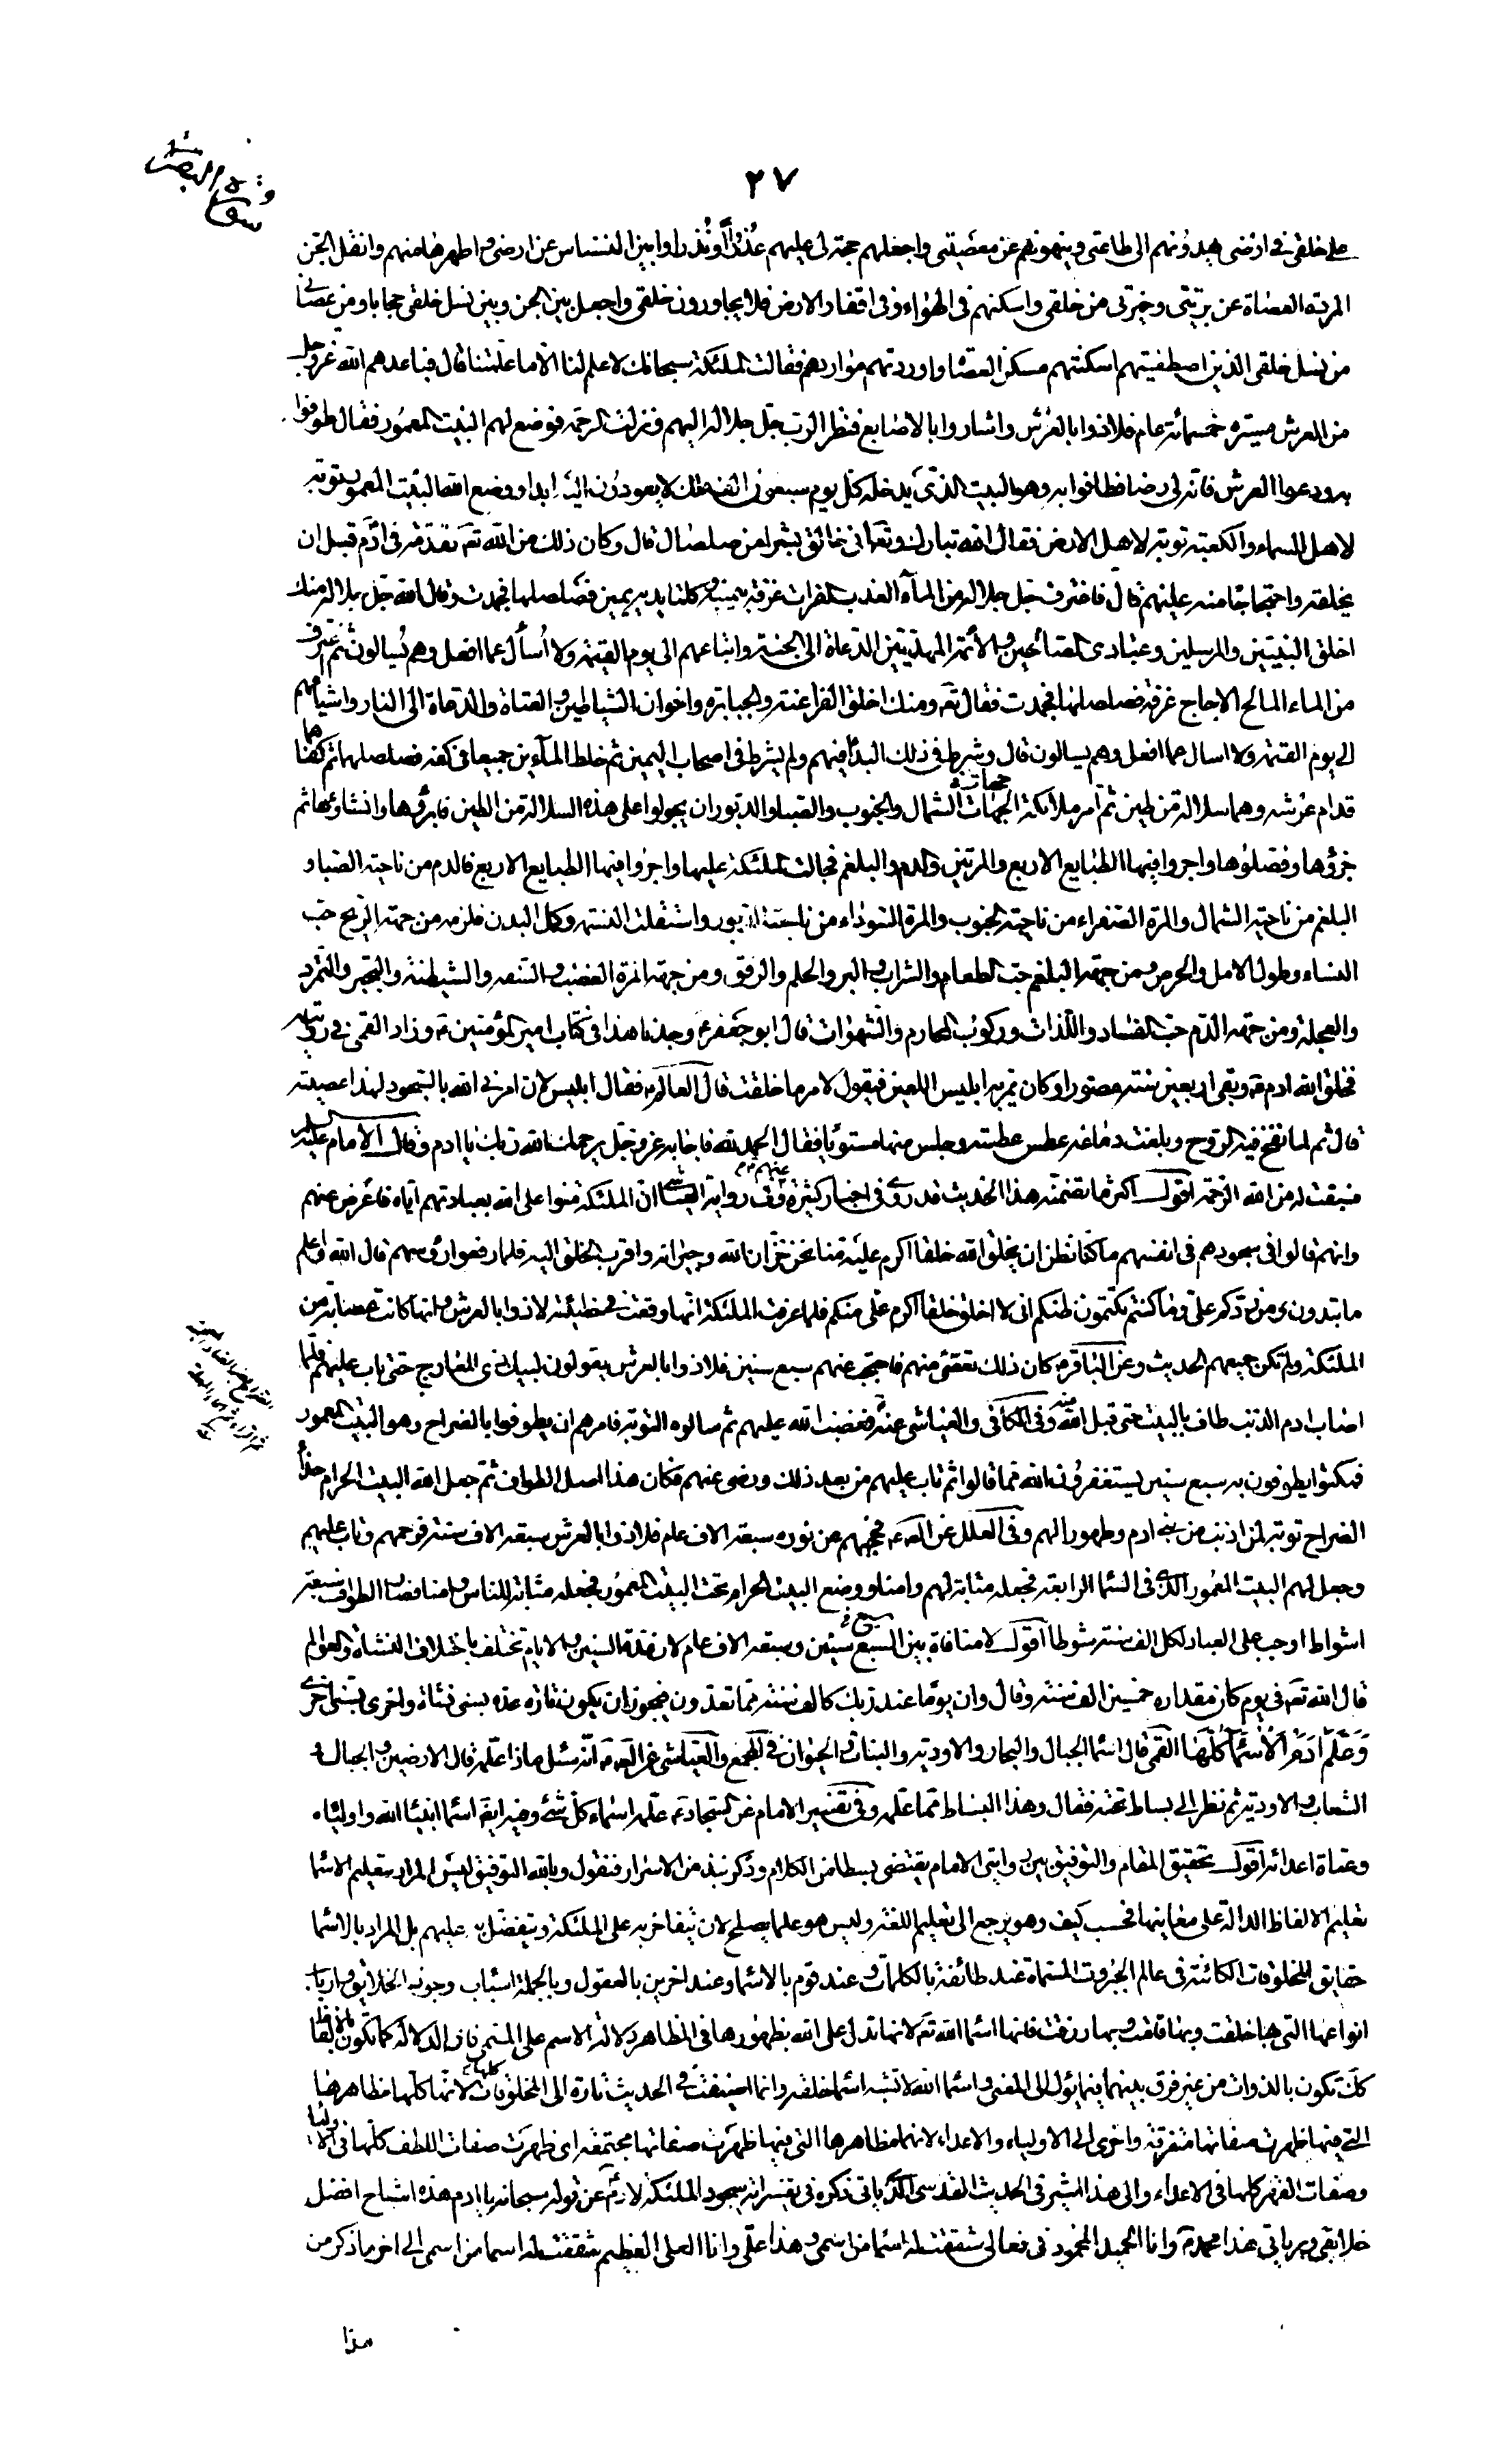 ٢٧
على خلقى فى ارضى يهدونهم الى طاعتى وينهونهم عن معصيتى واجعلهم حجة لى عليهم عُذْراً أَو نُذرا وابين النسناس عن ارضى واطهرها منهم وانقل الجن
المردة العصاة عن بريتى وخيرتى من خلقى واسكنهم فى الهواء وفى اقفار الارض فلا يجاورون خلقى واجعل بين الجن وبين نسل خلقى حجابا ومن عصانى
من نسل خلقى الذين اصطفيتهم اسكنتهم مسكن العصاة واوردتهم مواردهم فقالت الملئكة سبحانك لا علم لنا الا ما علمتنا قال فباعدهم الله عز وجل
من العرش مسيرة خمسمائة عام فلاذوا بالعرش واشاروا بالاصابع فنظر الرب جل جلاله اليهم ونزلت الرحمة فوضع لهم البيت المعمور فقال طوفوا
به ودعوا العرش فانه لى رضا فطافوا به وهو البيت الذى يدخله كل يوم سبعون الف ملك لا يعودون اليه ابدا ووضع الله البيت المعمور توبة
لاهل السماء والكعبة توبة لاهل الارض فقال الله تبارك وتعالى انى خالق بشرا من صلصال قال وكان ذلك من الله تعـ تقدمة فى آدم قبل ان
يخلقه واحتجاجا منه عليهم قال فاغترف جل جلاله من الماء العذب الفرات غرفة بيمينه وكلتا يديه يمين فصلصلها فجمدت وقال الله جل جلاله منك
اخلق النبيين والمرسلين وعبادى الصالحين والائمة المهديين الدعاة الى الجنة واتباعهم الى يوم القيمة ولا اُسأل عما افعل وهم يُسالون ثم اغترف
من الماء المالح الاجاج غرفة فصلصلها فجمدت فقال تعـ ومنك اخلق الفراعنة والجبابرة واخوان الشياطين والعتاة والدعاة الى النار واشياعهم
الى يوم القيمة ولا اسال عما افعل وهم يسالون قال وشرط فى ذلك البدأ فيهم ولم يشرط فى اصحاب اليمين ثم خلط المآءين جميعا فى كفه فصلصلهما ثم كفاهما
قدام عرشه وهما سلالة من طين ثم امر ملائكة الجهات الشمال والجنوب والصبا والدبور ان يجولوا على هذه السلالة من الطين فابرؤها وانشاؤها ثم
جزؤها وفصلوها واجروا فيها الطبايع الاربع والمرتين والدم والبلغم فجالت الملئكة عليها واجروا فيها الطبايع الاربع فالدم من ناحية الصبا و
البلغم من ناحية الشمال والمرة الصفراء من ناحية الجنوب والمرة السوداء من ناحية الدبور واستقلت النسمة وكمل البدن فلزمه من جهة الريح حب
النساء وطول الامل والحرص ومن جهة البلغم حب الطعام والشراب والبر والحلم والرفق ومن جهة المرة الغضب والسفه والشيطنة والتجبر والتمرد
والعجلة ومن جهة الدم حب الفساد واللذات وركوب المحارم والشهوات قال ابو جعفر ع وجدنا هذا فى كتاب امير المؤمنين ع وزاد القمى فى روايته
فخلق الله ادم ع وبقى اربعين سنة مصورا وكان يمر به ابليس اللعين فيقول لامر ما خلقت قال العالم ع فقال ابليس لئن امرنى الله بالسجود لهذا عصيته
قال ثم لما نفخ فيه الروح وبلغت دماغه عطس عطسة وجلس منها مستويا فقال الحمد لله فاجابه عز وجل يرحمك الله ربك يا ادم وقال الامام عليه السلام
فسبقت له من الله الرحمة اقول اكثر ما تضمنه هذا الحديث قد روى فى اخبار كثيرة وفى رواية العياشى ان الملئكة منوا على الله بعبادتهم اياه فاعرض عنهم
وانهم قالوا فى سجودهم فى انفسهم ما كنا نظن ان يخلق الله خلقا اكرم عليه منا نحن خزان الله وجيرانه واقرب الخلق اليه فلما رفعوا رؤسهم قال الله واعلم
ما تبدون من ردكم علىّ وما كنتم تكتمون ظنكم انى لا اخلق خلقا اكرم علىّ منكم فلما عرفت الملئكة انها وقعت فى خطيئة لاذوا بالعرش وانها كانت عصابة من
الملئكة ولم تكن جميعهم الحديث وعن الباقر ع كان ذلك تعصى منهم فاحتجب عنهم سبع سنين فلاذوا بالعرش يقولون لبيك ذى المعارج حتى تاب عليهم فلما
اصاب ادم الذنب طاف بالبيت حتى قبل الله منه وفى الكافى والعياشى عنه ع فغضب الله عليهم ثم سالوه التوبة فامرهم ان يطوفوا بالضراح وهو البيت المعمور
فمكثوا يطوفون به سبع سنين يستغفرون الله مما قالوا ثم تاب عليهم من بعد ذلك ورضى عنهم فكان هذا اصل الطواف ثم جعل الله البيت الحرام حذأ
الضراح توبة لمن اذنب من بنى ادم وطهورا لهم وفى العلل عن الصـ ع فحجبهم عن نوره سبعة الاف عام فلاذوا بالعرش سبعة الاف سنة فرحمهم وتاب عليهم
وجعل لهم البيت المعمور الذى فى السماء الرابعة فجعله مثابة لهم وامنا ووضع البيت الحرام تحت البيت المعمور فجعله مثابة للناس وامنا فصار الطواف سبعة
اشواط اوجب على العباد لكل الف سنة شوطا اقول لا منافاة بين السبع سنين وسبعة الاف عام لان مدة السنين والايام تختلف باختلاف النشاة والعوالم
قال الله تعـ فى يوم كان مقداره خمسين الف سنة وقال وان يوما عند ربك كالف سنة مما تعدون فيجوز ان يكون تارة عده بسنى نشاة واخرى بسنى اخرى
وَعَلَّمَ آدَمَ الْأَسْمَآءَ كُلَّهَا القمى قال اسماء الجبال والبحار والاودية والنبات والحيوان وفى المجمع والعياشى عن الصـ ع انه سئل ماذا علمه قال الارضين والجبال و
الشعاب والاودية ثم نظر الى بساط تحته فقال وهذا البساط مما علمه وفى تفسير الامام عن السجاد ع علمه اسماء كل شئ وفيه ايضا اسماء انبياء الله واوليائه
وعتاة اعدائه اقول تحقيق المقام والتوفيق بين روايتى الامام يقتضى بسطا من الكلام وذكر نبذ من الاسرار فنقول وبالله التوفيق ليس المراد بتعليم الاسماء
تعليم الالفاظ الدالة على معانيها فحسب كيف وهو يرجع الى تعليم اللغة وليس هو علما يصلح لان يتفاخر به على الملئكة ويتفضل به عليهم بل المراد بالاسماء
حقايق المخلوقات الكائنة فى عالم الجبروت المسماة عند طائفة بالكلمات وعند قوم بالاسماء وعند اخرين بالعقول وبالجملة اسباب وجود الخلايق وارباب
انواعها التى بها خلقت وبها قامت وبها رزقت فانها اسماء الله تعـ لانها تدل على الله بظهورها فى المظاهر دلالة الاسم على المسمى فان الدلالة كما تكون بالالفاظ
كك تكون بالذوات من غير فرق بينهما فيما يؤل الى المعنى واسماء الله لا تشبه اسماء خلقه وانما اضيفت فى الحديث تارة الى المخلوقات كلها لانها كلها مظاهرها
التى فيها ظهرت صفاتها متفرقة واخرى الى الاولياء والاعداء لانهما مظاهرها التى فيها ظهرت صفاتها مجتمعة اى ظهرت صفات اللطف كلها فى الاولياء
وصفات القهر كلها فى الاعداء والى هذا اشير فى الحديث القدسى الذى ياتى ذكره فى تفسير اية سجود الملئكة لادم ع من قوله سبحانه يا ادم هذه اشباح افضل
خلائقى وبرياتى هذا محمد ص وانا الحميد المحمود فى فعالى شققت له اسما من اسمى وهذا على وانا العلى العظيم شققت له اسما من اسمى الى اخر ما ذكر من
هذا